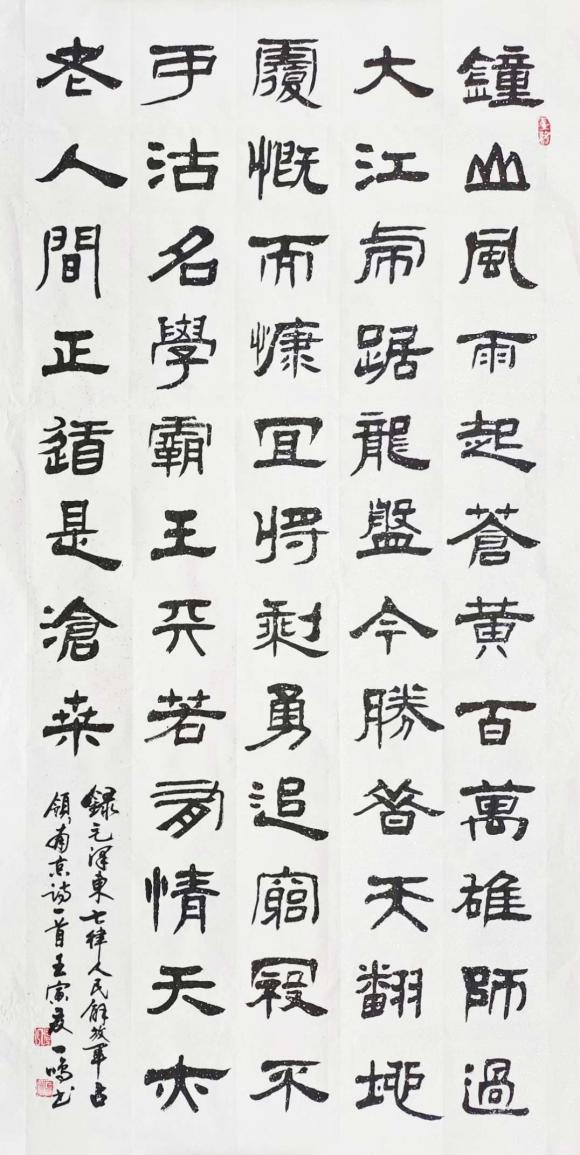 鐘山風雨起蒼黄百萬雄師過
大江虎踞龍盤今勝昔天翻地
覆慨而慷宜將剩勇追窮寇不
可沽名學霸王天若有情天亦
老人間正道是滄桑
録毛澤東七律人民解放軍占
領南京诗一首壬寅夏一鳴书